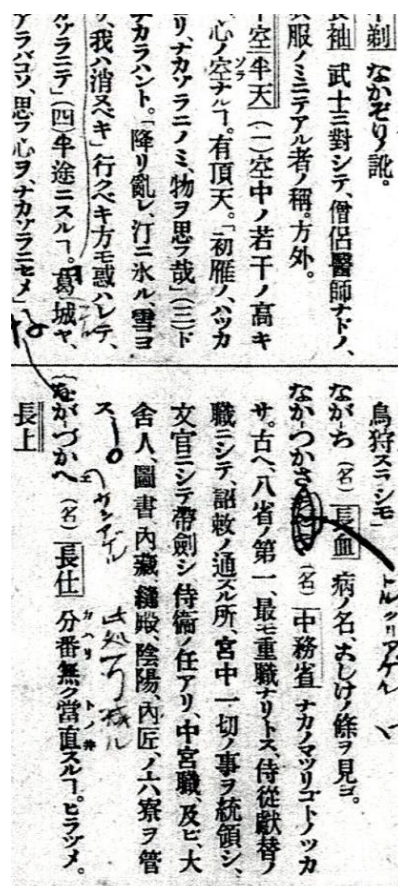 剃 なかぞりノ訛。
長袖 武士ニ對シテ、僧侶醫師ナドノ、
服ノミニテアル者ノ稱。方外。
空 半天 (一)空中ノ若干ノ高キ
心ノ空ナルヿ。有頂天。「初雁ノ、ハツカ
リ、ナカゾラニノミ、物ヲ思フ哉」(三)ド
チカラハント。「降リ亂レ、汀ニ氷ル、雪ヨ
リ、我ハ消ヌベキ」行クベキ方モ惑ハレテ、
ゾラニテ」(四)半途ニスルヿ。葛城ヤ、
アラバコソ、思フ心ヲ、ナカゾラニセメ」
鳥狩スラシモ」
ながち (名) 長血 病ノ名、おしけノ條ヲ見ヨ。
なかつかさ (名) 中務省 ナカノマツリゴトノツカ
サ。古ヘ、八省ノ第一、最モ重職ナリトス、侍從獻替ノ
職ニシテ、詔敕ノ通ズル所、宮中一切ノ事ヲ統領シ、
文官ニシテ帶劍シ侍衞ノ任アリ、中宮職、及ビ、大
舍人、圖書、內藏、縫殿、陰陽、內匠、ノ六寮ヲ管
ス。
ながづかへ (名) 長仕 分番無ク當直スルヿ。ヒラヅメ。
長上